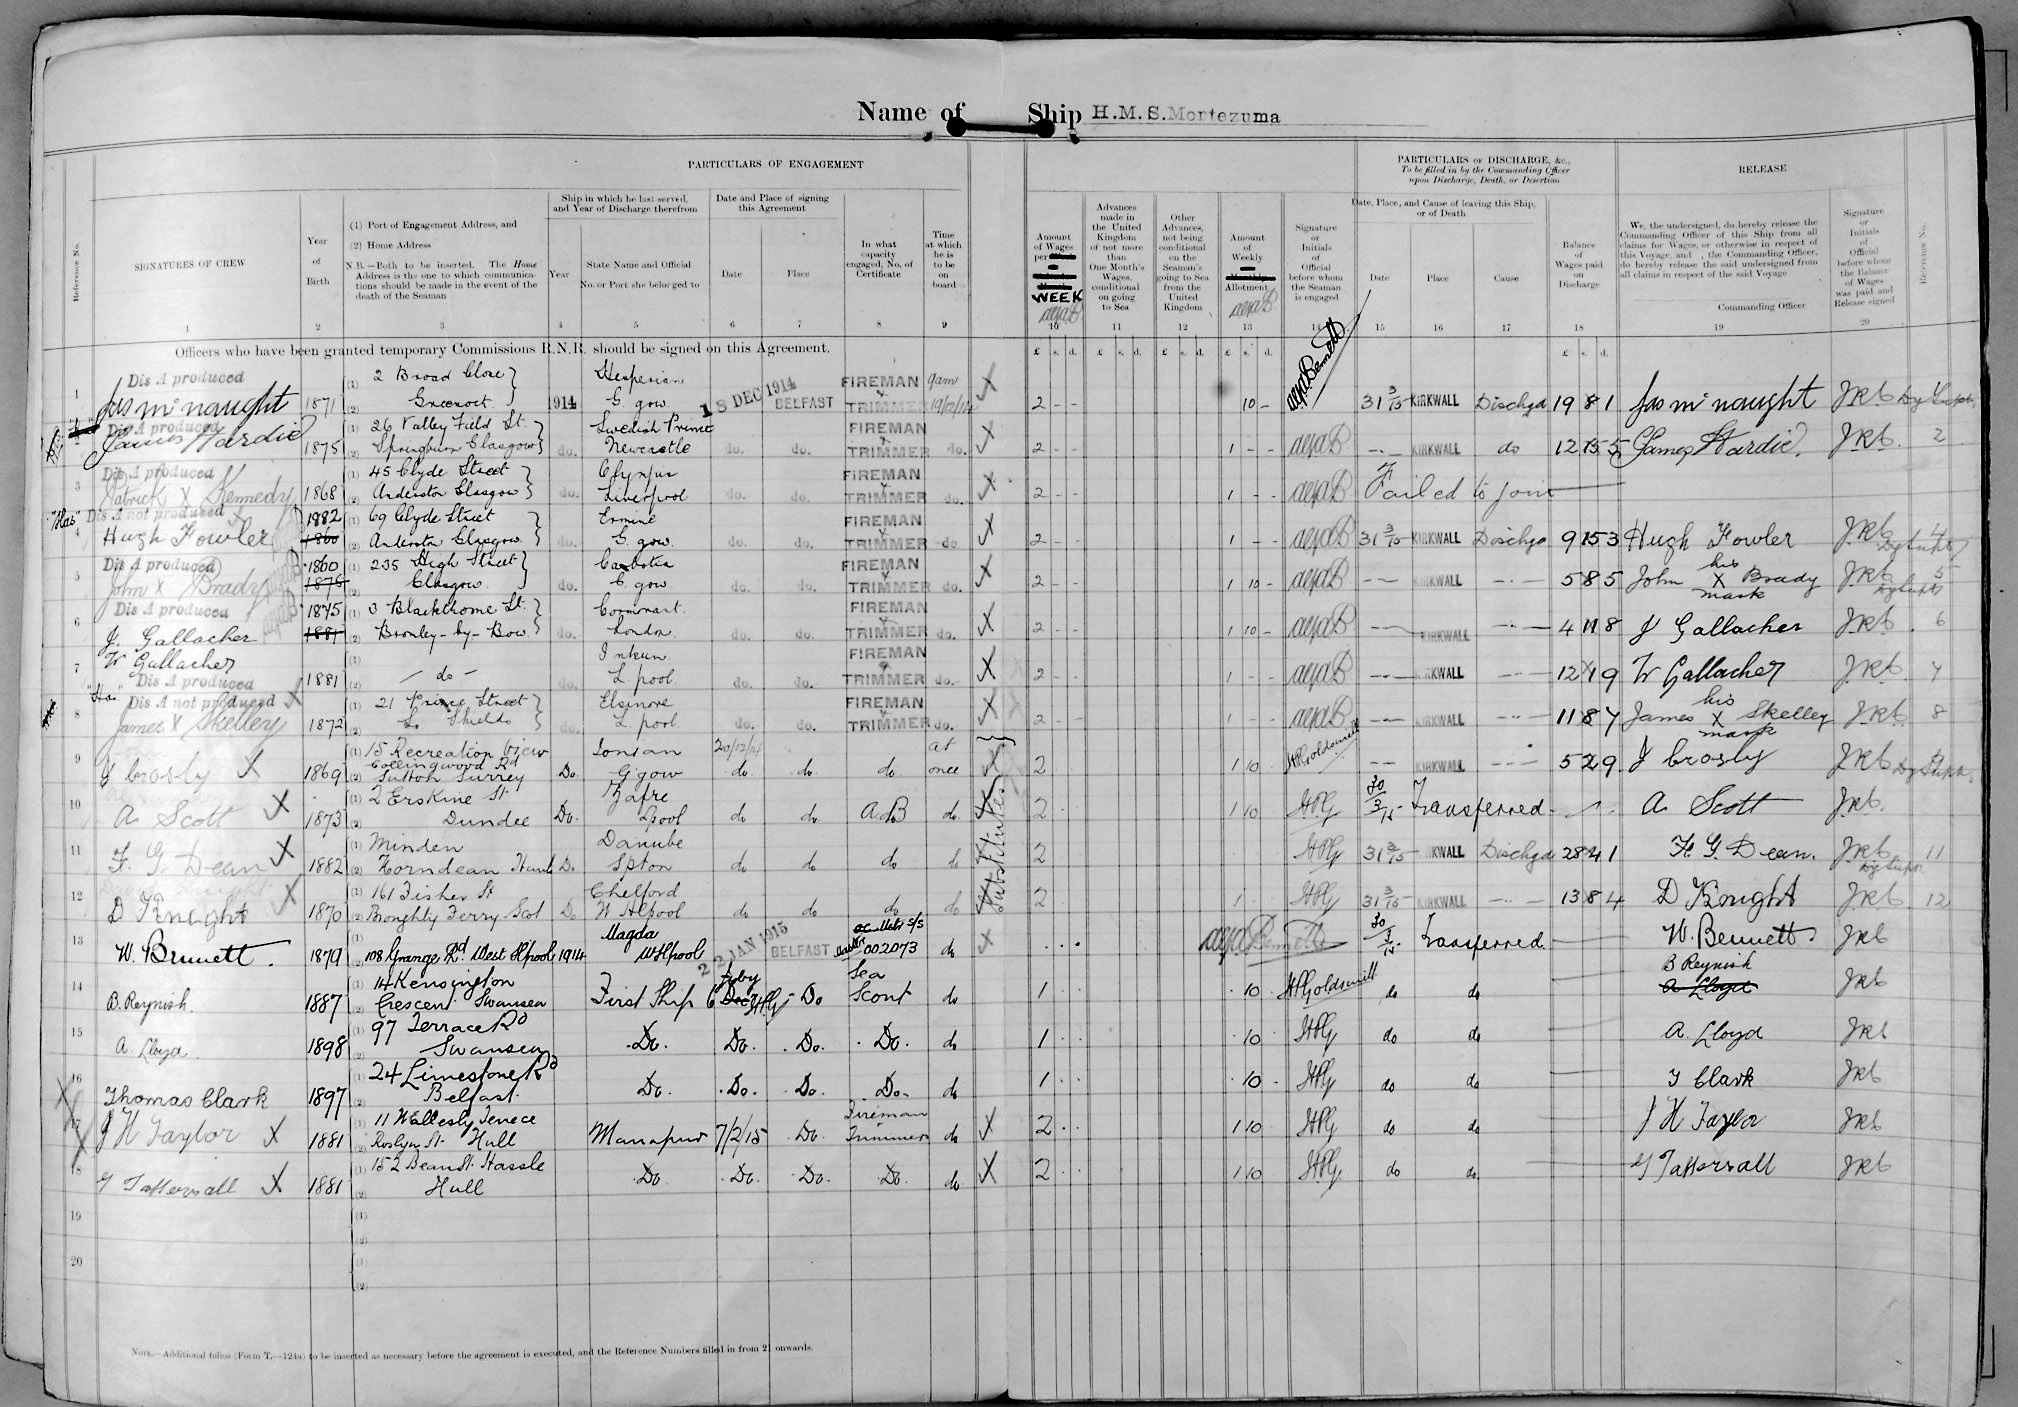 Name of Ship H.M.S. Montezuma
PARTICULARS OF ENGAGEMENT
PARTICULARS OF DISCHARGE, &c.,
To be filled in by the Commanding Officer
upon Discharge, Death, or Desertion
RELEASE
Reference No.
SIGNATURES OF CREW
Year
of
Birth
(1) Port of Engagement Address, and
(2) Home Address
N.B.—Both to be inserted. The Home
Address is the one to which communica-
tions should be made in the event of the
death of the Seaman
Ship in which he last served,
and Year of Discharge therefrom
Year
State Name and Official
No. or Port she belonged to
Date and Place of signing
this Agreement
Date
Place
In what
capacity
engaged, No. of
Certificate
Time
at which
he is to
be
on
board
Amount
of Wages
per
WEEK
Advances
made in
the United
Kingdom
of not more
than
One Month's
Wages,
conditional
on going
to Sea
Other
Advances,
not being
conditional
on the
Seaman's
going to Sea
from the
United
Kingdom
Amount
of
Weekly
Allotment
Signature
or
Initials
of
Official
before whom
the Seaman
is engaged
Date, Place, and Cause of leaving this Ship,
or of Death
Date
Place
Cause
Balance
of
Wages paid
on
Discharge
We, the undersigned, do hereby release the
Commanding Officer of this Ship from all
claims for Wages, or otherwise in respect of
this Voyage, and , the Commanding Officer,
do hereby release the said undersigned from
all claims in respect of the said Voyage
Commanding Officer
Signature
or
Initials
of
Official
before whom
the Balance
of Wages
was paid and
Release signed
Reference No.
1 2 3 4 5 6 7 8 9 10 11 12 13 14 15 16 17 18 19 20
Officers who have been granted temporary Commissions R.N.R. should be signed on this Agreement.
£ s. d. £ s. d. £ s. d. £ s. d. £ s. d.
Dis A produced (1) 2 Broad Close Hesperian FIREMAN 9am
1 Jas McNaught 1871 (2) Greenock 1914 G. gow 18 DEC 1914 BELFAST TRIMMER 19/12/14 X 2 - - 10 - 31 3/15 KIRKWALL Dischgd 19 8 1 Jas McNaught JRB
Dis A produced (1) 26 Valley Field St. Swedish Prince FIREMAN
James Hardie 1875 (2) Springburn Glasgow do. Newcastle do. do. TRIMMER do. X 2 - - 1 - - KIRKWALL do 12 15 5 James Hardie JRB 2
Dis A produced (1) 45 Clyde Street Olympus FIREMAN
3 Patrick X Kennedy 1868 (2) Anderston Glasgow do. Liverpool do. do. TRIMMER do. X 2 - - 1 - - Failed to join
"Has" Dis A not produced 1882 (1) 69 Clyde Street Ermine FIREMAN
4 Hugh Fowler 1860 (2) Anderston Glasgow do. G. gow do. do. TRIMMER do. X 2 - - 1 - - 31 3/15 KIRKWALL Dischgd 9 15 3 Hugh Fowler JRB 4
Dis A produced 1860 (1) 235 High Street FIREMAN
5 John X Brady 1876 (2) Glasgow. do. G gow do. do. TRIMMER do. X 2 - - 1 10 - KIRKWALL 5 8 5 John his X mark Brady JRB 5
Dis A produced 1875 (1) 3 Blackthorne St. FIREMAN
6 J. Gallacher 1881 (2) Bromley-by-Bow do. London do. do. TRIMMER do. X 2 - - 1 10 - KIRKWALL 4 11 8 J Gallacher JRB 6
7 W Gallacher (1) Inkum FIREMAN
Dis A produced 1881 (2) - do - do. L pool do. do. TRIMMER do. X 2 - - 1 - - KIRKWALL W Gallacher JRB 7
Dis A not produced X (1) 21 Prince Street Elsinore FIREMAN
8 James X Skelley 1872 (2) So Shields do. L pool do. do. TRIMMER do. X 2 - - 1 - - KIRKWALL 11 8 7 James his X mark Skelley JRB 8
(1) 15 Recreation View Ionian 20/12/14 at
Collingwood Rd
9 J Crosby X 1869 (2) Sutton Surrey Do G'gow do do do once X 2 1 10 HPGoldsmith KIRKWALL 5 2 9 J Crosby JRB 9
10 A Scott X 1873 (1) 2 Erskine St Zafre
(2) Dundee Do. Lpool do do AB do 2 1 10 HPG 30 3/15 Transferred A Scott JRB
Substitutes
11 F. G Dean X 1882 (1) Minden Danube
(2) Horndean Hants Do. Spton do do do do 2 HPG 31 3/15 KIRKWALL Dischgd 28 4 1 F. G. Dean. JRB 11
12 D Knight X 1870 (1) 161 Fisher St Chelford
(2) Broughty Ferry Scot Do W Hpool do do do do 2 1 HPG 31 3/15 KIRKWALL 13 8 4 D Knight JRB 12
13 W. Bennett. 1879 (1) Magda
(2) 108 Grange Rd West Hpool 1914 WHpool 22 JAN 1915 BELFAST 002073 do X 30 3/15 Transferred W. Bennett JRB
14 B. Reynish 1887 (1) 14 Kensington Sea B Reynish
(2) Crescent Swansea First Ship 6 Feby HPG Do Scout do 1 10 HPGoldsmith do do A Lloyd JRB
15 A. Lloyd 1898 (1) 97 Terrace Rd
(2) Swansea Do. Do. Do. Do. do 1 10 HPG do do A. Lloyd JRB
16 Thomas Clark 1897 (1) 24 Limestone Rd
(2) Belfast Do. Do. Do. Do. do 1 10 HPG do do T Clark JRB
17 J H Taylor X 1881 (1) 11 Wellesly Terrece Fireman
(2) Roslyn St. Hull Manapur 7/2/15 Do. Trimmer do X 2 1 10 HPG do do J H Taylor JRB
18 G Tattersall X 1881 (1) 152 Bean St. Hassle
(2) Hull Do. Do. Do. Do. do X 2 1 10 HPG do do G Tattersall JRB
19 (1)
(2)
20 (1)
(2)
NOTE.—Additional folios (Form T.—124a) to be inserted as necessary before the agreement is executed, and the Reference Numbers filled in from 21 onwards.